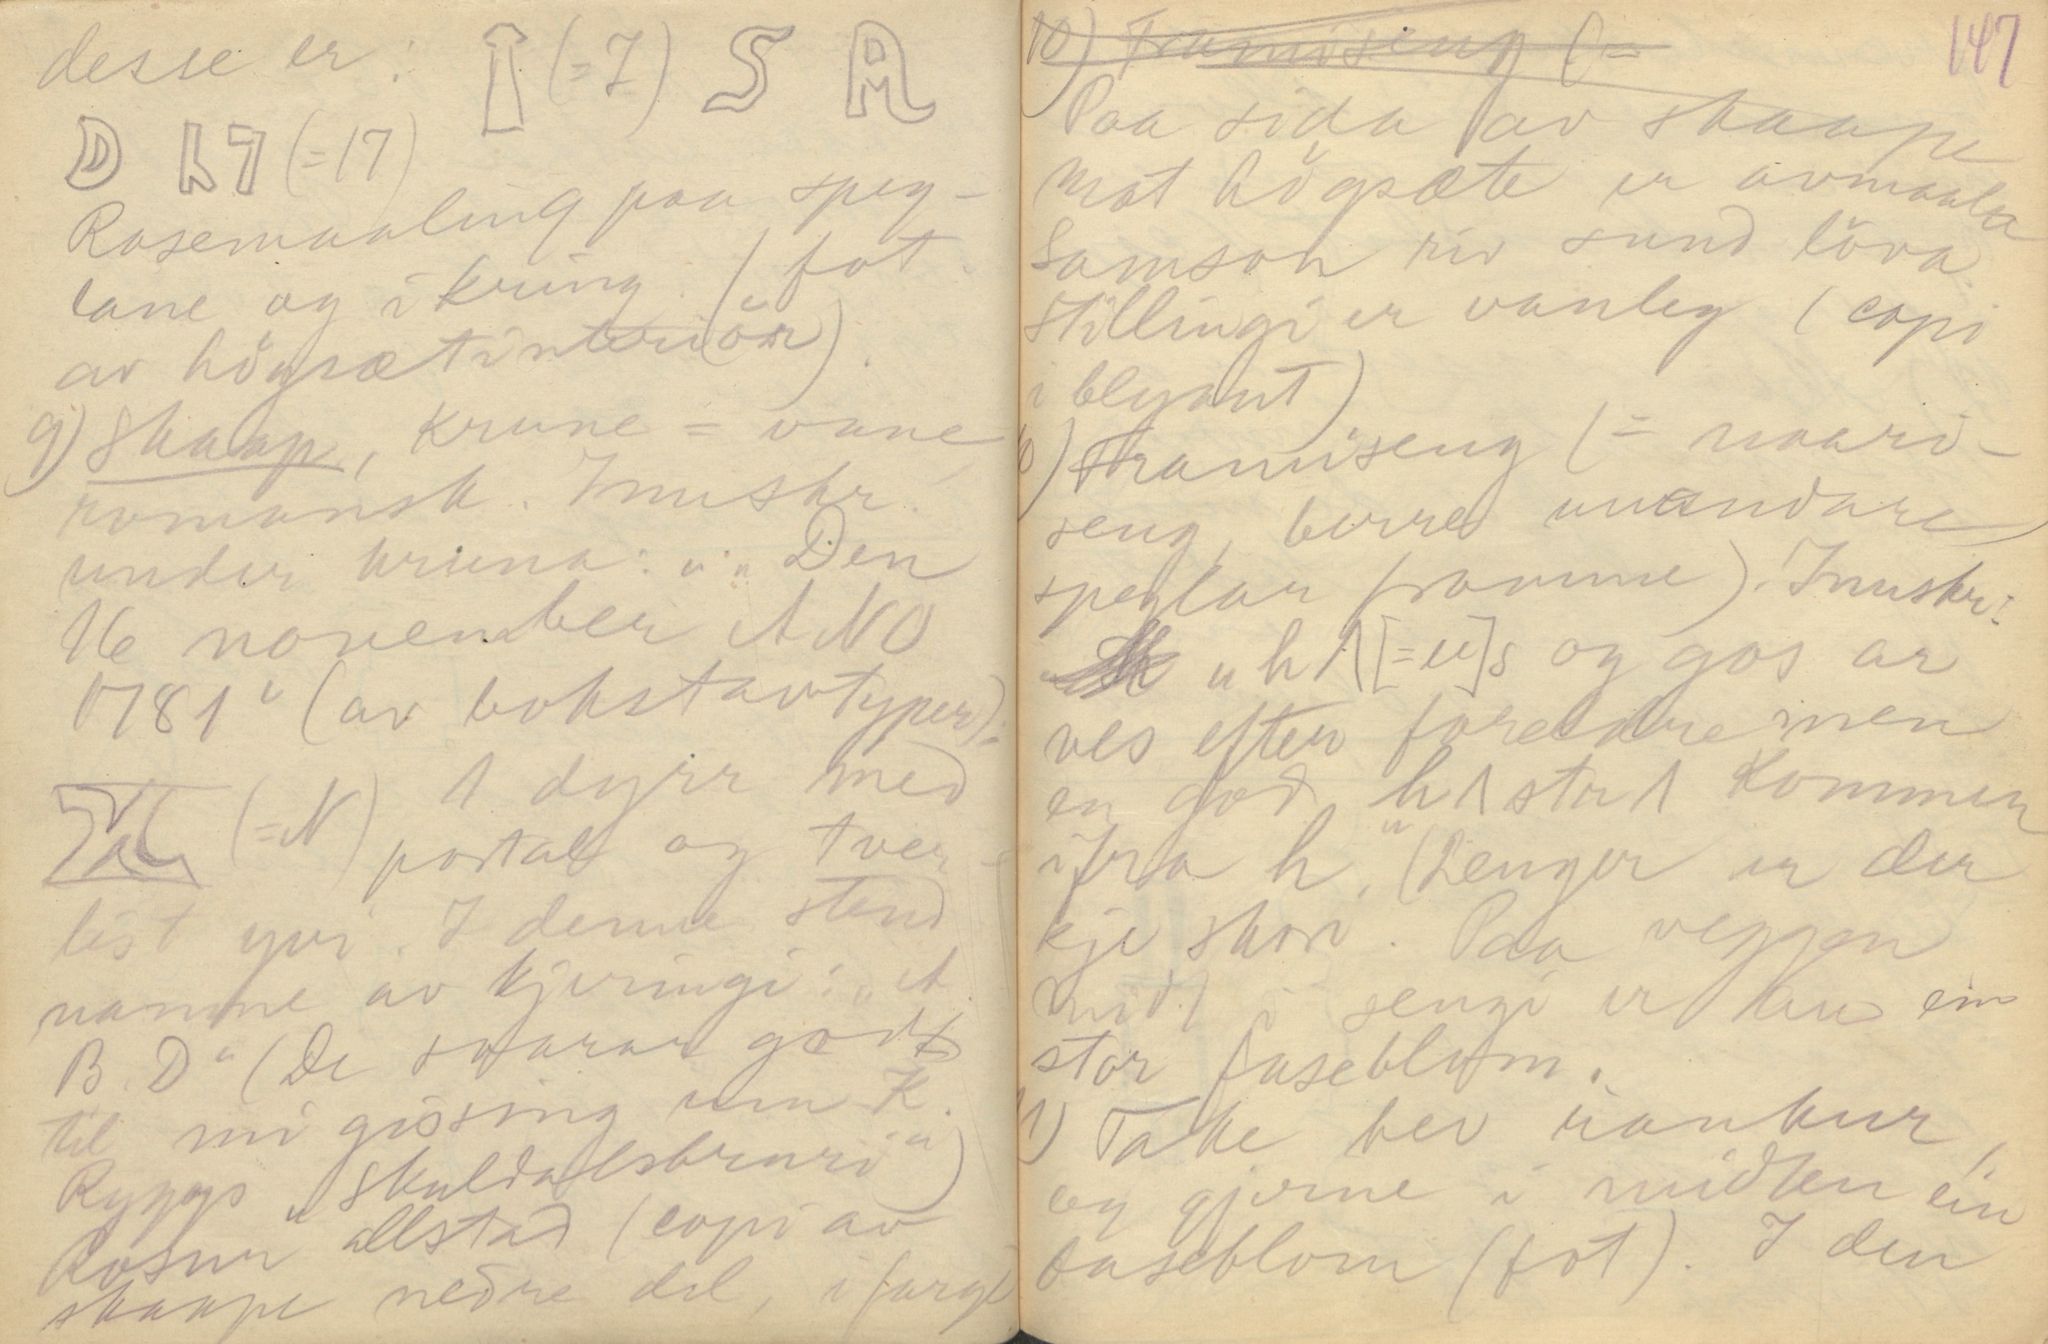 desse er: I (= I) S A
D 17 (= 17)
Rosemaaling paa speg-
lane og ikring (fot.
av högsætinteriör).
9) Skaap, krune = vane
romansk. Innskr.
under kruna: „ Den
16 november ANO
1781" (av bokstavtyper):
N (=N) 1 dyrr med
portal og tver-
list yvi. I denne stend
namne av kjeringi: „A
B. D" (De svarar godt
til mi gissing um K.
Ryggs „Skuldalsbruri")
Rosur allstad (copi av
skaape nedre del, i farge
147
10) Framiseng (=
Paa sida av skaape
mot högsæte er avmaala
Samson riv sund löva
Stillingi er vanleg (copi
i blyant)
10) Framiseng (= naari-
seng, berre
speglar framme). Innskr:
„h1[=u]s og gos ar
ves efter foreldre men
en god h1str1 kommer
ifra h". (Lenger er der
kje skori. Paa veggen
midt i sengi er ein
stor faseblom.
11) Take hev rankur,
og gjerne i midten ein
baseblom (fot). I den